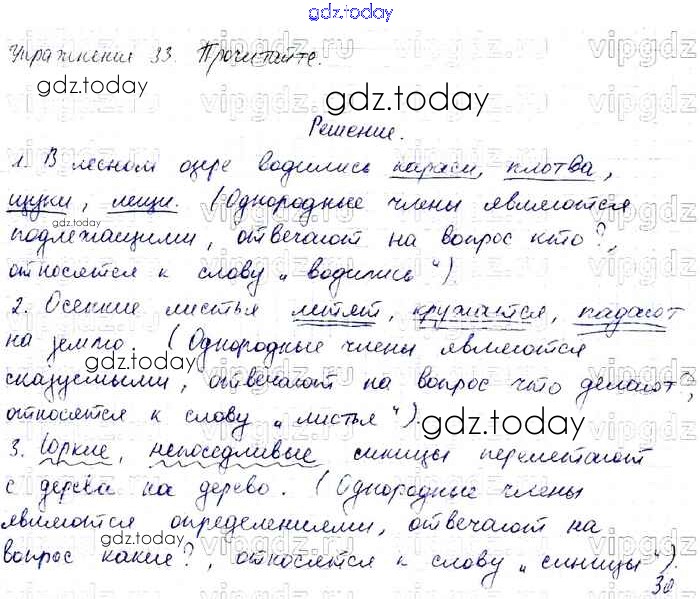 gdz.today
Упражнение 33. Прочитайте.
gdz.today
gdz.today
Решение.
1. В лесном озере водились караси, плотва,
щуки, лещи. (Однородные члены являются
gdz.today
подлежащими, отвечают на вопрос кто?,
относятся к слову „водились“).
2. Осенние листья летят, кружатся, падают
на землю. (Однородные члены являются
gdz.today
сказуемыми, отвечают на вопрос что делают?,
относятся к слову „листья“).
gdz.today
3. Юркие, непоседливые синицы перелетают
с дерева на дерево. (Однородные члены
являются определениями, отвечают на
вопрос какие?, относятся к слову „синицы“).
30